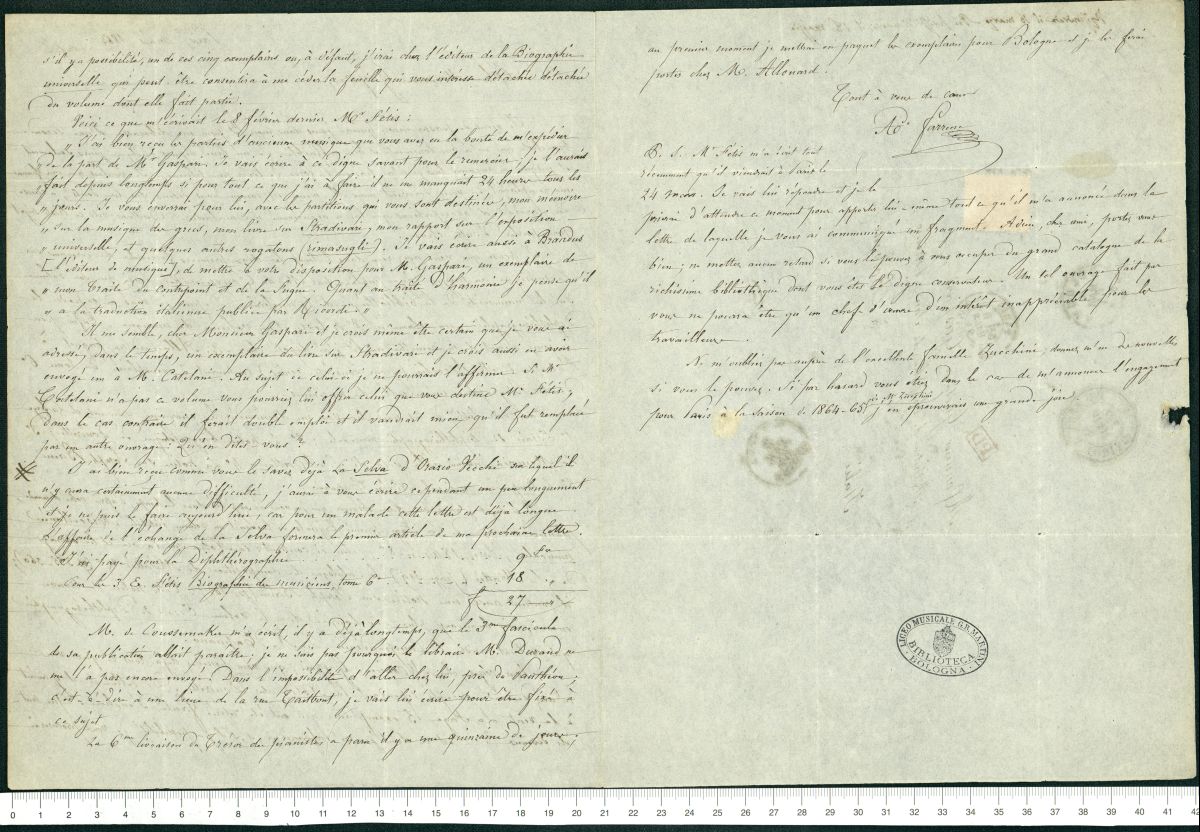 s'il y a possibilité, un de ces cinq exemplaires ou, à défaut, j'irai chez l'éditeur de la Biographie
universelle qui peut-être consentira à me céder la feuille qui vous intéresse détachée détachée
du volume dont elle fait partie.
Voici ce que m'écrivait le 8 février dernier Mr Fétis:
"J'ai bien reçu les parties d'ancienne musique que vous avez eu la bonté de m'expédier
"de la part de Mr Gaspari. Je vais écrire à ce digne savant pour le remercier; je l'aurais
"fait depuis longtemps si pour tout ce que j'ai à faire il ne me manquait 24 heures tous les
"jours. Je vous enverrai pour lui, avec les partitions qui vous sont destinées, mon mémoire
"sur la musique des grecs, mon livre sur Stradivari, mon rapport sur l'exposition
"universelle, et quelques autres rogatons (rimasugli). Je vais écrire aussi à Brandus
[l'éditeur de musique], de mettre à votre disposition pour M. Gaspari, un exemplaire de
"mon Traité du contrepoint et de la fugue. Quant au traité d'harmonie, je pense qu'il
"a la traduction italienne publiée par Ricordi."
Il me semble, cher Monsieur Gaspari et je crois même être certain que je vous ai
adressé, dans le temps, un exemplaire du livre sur Stradivari et je crois aussi en avoir
envoyé un à M. Catelani. Au sujet de celui-ci je ne pourrais l'affirmer. Si Mr
Catelani n'a pas ce volume vous pourriez lui offrir celui que vous destine Mr Fétis;
dans le cas contraire il ferait double emploi et il vaudrait mieux qu'il fut remplacé
par un autre ouvrage: Qu'en dites-vous?
J'ai bien reçu comme vous le savez déjà La Selva d'Orazio Vecchi sur laquelle il
n'y aura certainement aucune difficulté, j'aurai à vous écrire cependant un peu longuement
et je ne puis le faire aujourd'hui, car pour un malade cette lettre est déjà longue
L'affaire de l'échange de la Selva formera le premier article de ma prochaine lettre.
J'ai payé pour la Diphthérographie 9 fr
Pour le F. J. Fétis Biographie des musiciens, tome 6e 18 "
f 27
M. de Coussemaker m'a écrit, il y a déjà longtemps, que le 3me fascicule
de sa publication allait paraître: je ne sais pas pourquoi le libraire Mr. Durand ne
me l'a pas encore envoyé. Dans l'impossibilité d'aller chez lui, près du Panthéon;
c'est-à-dire à une lieue de la rue Taitbout, je vais lui écrire pour être fixé à
ce sujet.
La 6me livraison du Trésor des pianistes a paru il y a une quinzaine de jours;
au premier moment je mettrai en paquet les exemplaires pour Bologne et je les ferai
porter chez M. Allouard.
Tout à vous de cœur
Ade Farrenc
P. S. Mr Fétis m'a écrit tout
récemment qu'il viendrait à Paris le
24 mars. Je vais lui répondre et je le
prierai d'attendre ce moment pour apporter lui-même tout ce qu'il m'a annoncé dans la
lettre de laquelle je vous ai communiqué un fragment. Adieu, cher ami, portez vous
bien; ne mettez aucun retard si vous le pouvez à vous occuper du grand catalogue de la
richissime bibliothèque dont vous êtes le digne conservateur. Un tel ouvrage fait par
vous ne pourra être qu'un chef d'œuvre d'un intérêt inappréciable pour les
travailleurs.
Ne m'oubliez pas auprès de l'excellente famille Zucchini; donnez m'en des nouvelles
si vous le pouvez. Si par hasard vous étiez dans le cas de m'annoncer l'engagement
pour Paris à la saison de 1864-65 de Mr Zucchini j'en éprouverais une grande joie.
PD
LICEO MUSICALE G.B. MARTINI
BIBLIOTECA
BOLOGNA
0 1 2 3 4 5 6 7 8 9 10 11 12 13 14 15 16 17 18 19 20 21 22 23 24 25 26 27 28 29 30 31 32 33 34 35 36 37 38 39 40 41 42